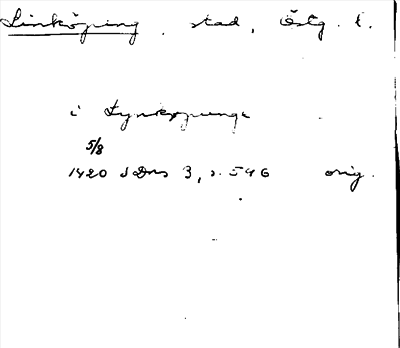 Linköping. stad, Östg. l.
i Lynkopunge
5/8
1420 SDns 3, s. 546 orig.